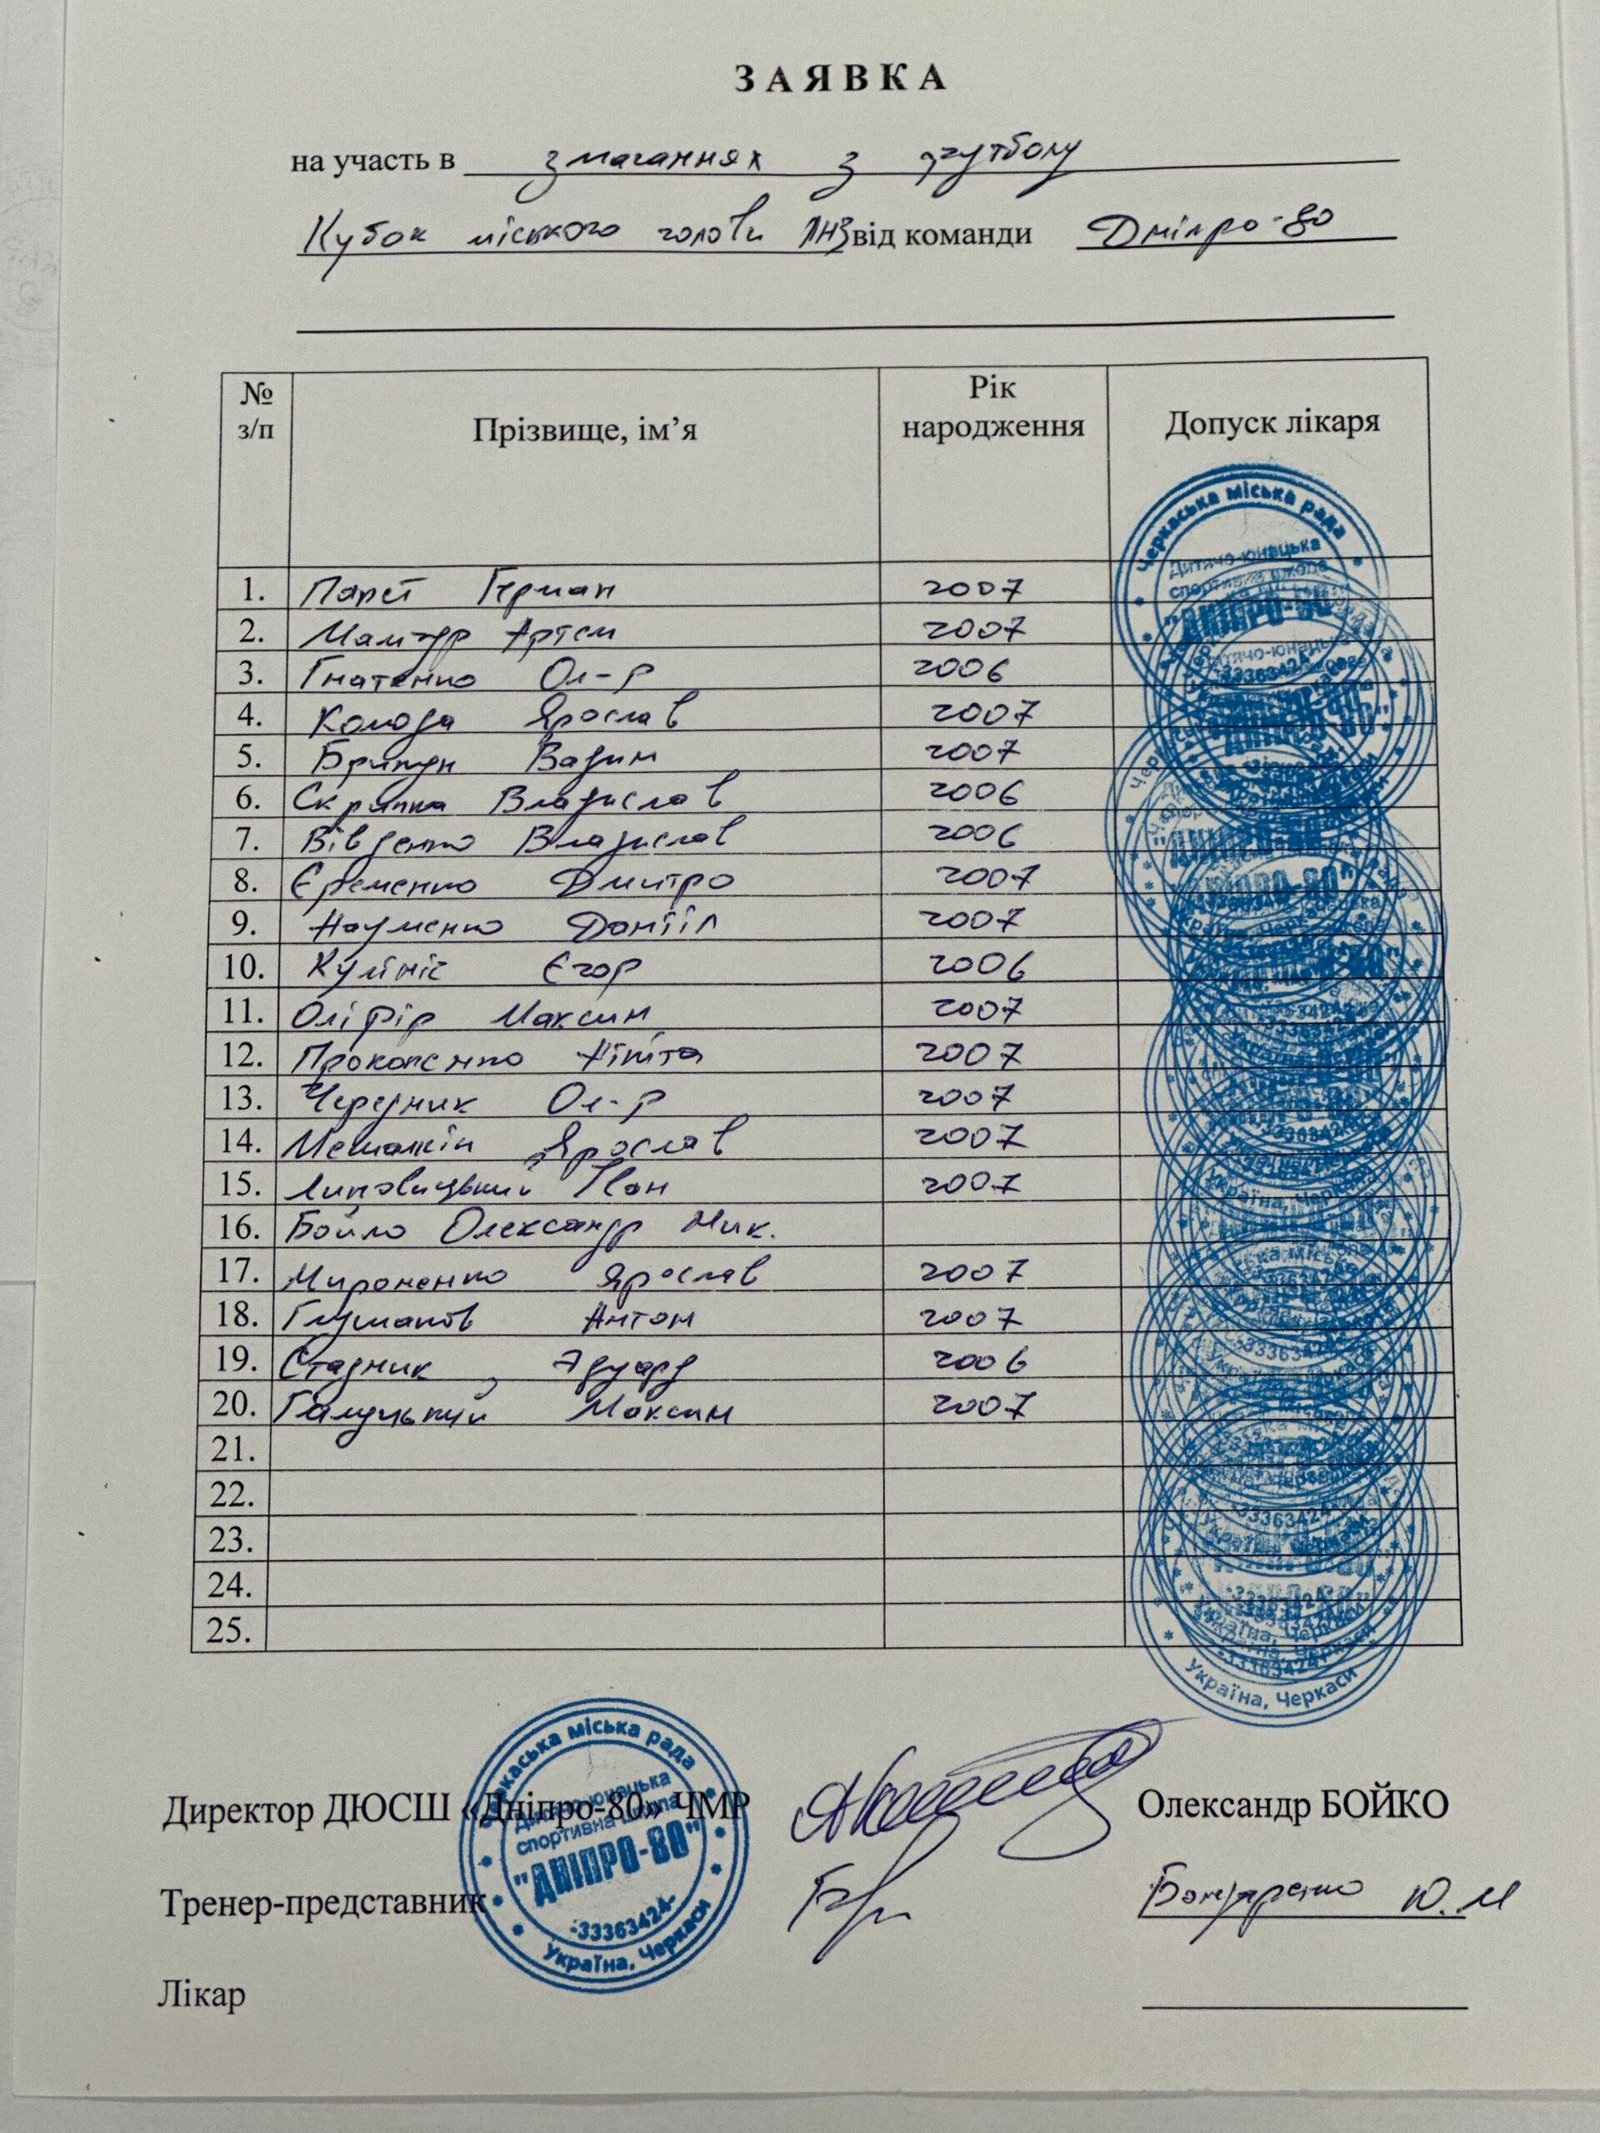 ЗАЯВКА
на участь в змаганнях з футболу
Кубок міського голови ЛНЗ від команди Дніпро-80
№ з/п Прізвище, ім’я Рік народження Допуск лікаря
1. Герман 2007
2. Артем 2007
3. Гнатенко Ол-р 2006
4. Колода Ярослав 2007
5. Вадим 2007
6. Скрипка Владислав 2006
7. Владислав 2006
8. Єременко Дмитро 2007
9. Науменко Данііл 2007
10. Єгор 2006
11. Оліфір Максим 2007
12. Прокопенко Нікіта 2007
13. Чередник Ол-р 2007
14. Ярослав 2007
15. Липовицький Іван 2007
16. Бойко Олександр Мик.
17. Мироненко Ярослав 2007
18. Глушаков Антон 2007
19. Стадник Едуард 2006
20. Галуцький Максим 2007
21.
22.
23.
24.
25.
Черкаська міська рада
Дитячо-юнацька
спортивна школа
"ДНІПРО-80"
-33363424-
Україна, Черкаси
Директор ДЮСШ «Дніпро-80» ЧМР Олександр БОЙКО
Тренер-представник Бондаренко Ю.М
Лікар